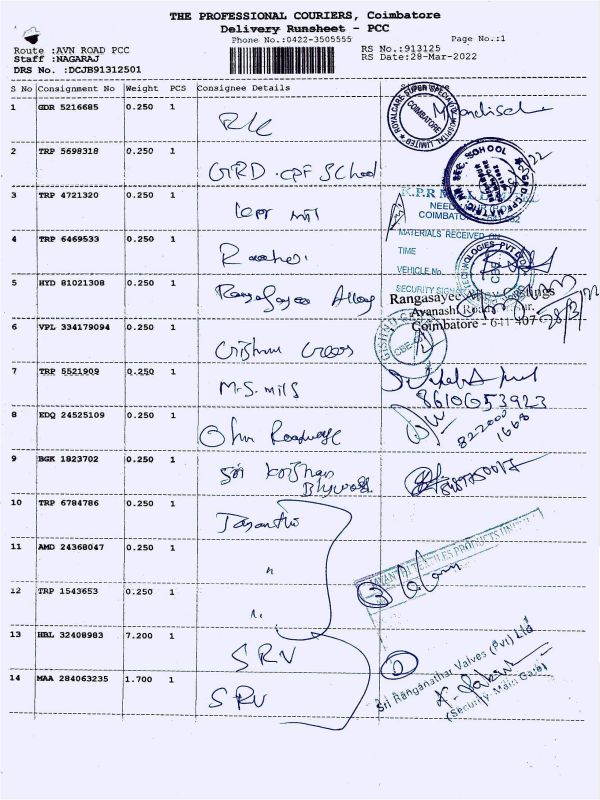 THE PROFESSIONAL COURIERS, Coimbatore
Delivery Runsheet - PCC
Phone No.:0422-3505555
Page No.:1
Route :AVN ROAD PCC
RS No.:913125
Staff :NAGARAJ
RS Date:28-Mar-2022
DRS No. :DCJB91312501
S No Consignment No Weight PCS Consignee Details
1 GDR 5216685 0.250 1
ROYALCARE SUPER SPECIALITY HOSPITAL LIMITED COIMBATORE
2 TRP 5698318 0.250 1 GRD . CPF School
3 TRP 4721320 0.250 1 kpr mill
K.P.R MILL
COIMBATORE
MATERIALS RECEIVED ON
TIME
VEHICLE No.
SECURITY SIGN
4 TRP 6469533 0.250 1
TECHNOLOGIES PVT LTD CBE
5 HYD 81021308 0.250 1 Rangasayee Alloy
Rangasayee Alloy Castings
Avanashi Road
Coimbatore - 641 407
28/3/22
6 VPL 334179094 0.250 1
7 TRP 5521909 0.250 1 M.S. mills
8610053923
8 EDQ 24525109 0.250 1 Ohm Roadways
9 BGK 1823702 0.250 1 Sri Krishna
10 TRP 6784786 0.250 1 Jasantha
11 AMD 24368047 0.250 1 "
TEXTILES PRODUCTS UNIT
3
12 TRP 1543653 0.250 1 "
13 HBL 32408983 7.200 1 SRV
2
14 MAA 284063235 1.700 1 SRV
Sri Ranganathar Valves (Pvt) Ltd
(Security-Main Gate)